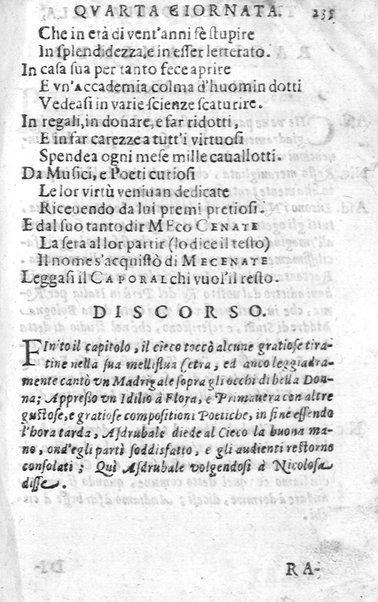 QVARTA GIORNATA. 235
Che in età di vent'anni fè stupire
In splendidezza, e in esser letterato.
In casa sua per tanto fece aprire
E vn'Accademia colma d'huomin dotti
Vedeasi in varie scienze scaturire.
In regali, in donare, e far ridotti,
E in far carezze a tutt'i virtuosi
Spendea ogni mese mille cauallotti.
Da Musici, e Poeti curiosi
Le lor virtù veniuan dedicate
Riceuendo da lui premi pretiosi.
E dal suo tanto dir MEco CENATE
La sera al lor partir (lo dice il testo)
Il nome s'acquistò di MECENATE
Leggasi il CAPORAL chi vuol'il resto.
DISCORSO.
FInito il capitolo, il cieco toccò alcune gratiose tira-
tine nella sua melliflua Cetra, ed anco leggiadra-
mente cantò vn Madrigale sopra gli occhi di bella Don-
na; Appresso vn Idilio à Flora, e Primauera con altre
gustose, e gratiose compositioni Poetiche, in fine essendo
l'hora tarda, Asdrubale diede al Cieco la buona ma-
no, ond'egli partì soddisfatto, e gli audienti restorno
consolati; Quì Asdrubale volgendosi à Nicolosa
disse.
RA-